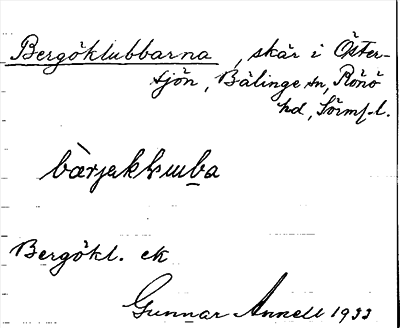 Bergöklubbarna, skär i Öster-
sjön, Bälinge sn, Rönö
hd, Sörml.
Bergökl. ek
Gunnar Annell 1933